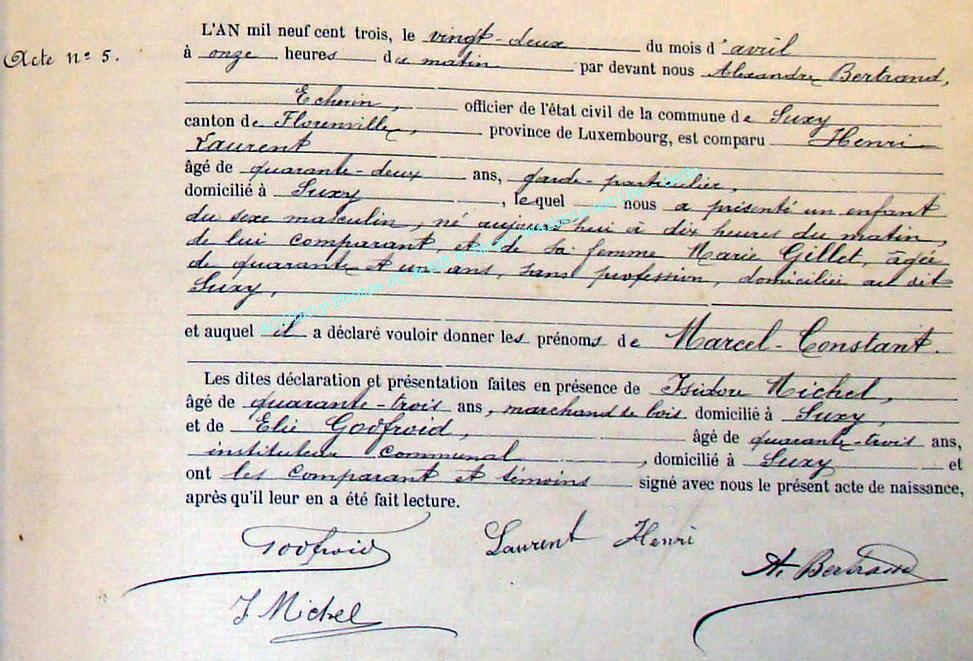 Acte n° 5.
L'AN mil neuf cent trois, le vingt-deux du mois d'avril
à onze heures du matin par devant nous Alexandre Bertrand,
Echevin, officier de l'état civil de la commune de Suxy
canton de Florenville, province de Luxembourg, est comparu Henri
Laurent
âgé de quarante-deux ans, garde-particulier,
domicilié à Suxy, lequel nous a présenté un enfant
du sexe masculin, né aujourd'hui à dix heures du matin,
de lui comparant et de sa femme Marie Gillet, âgée
de quarante et un ans, sans profession, domiciliée au dit
Suxy,
et auquel il a déclaré vouloir donner les prénoms de Marcel-Constant.
Les dites déclaration et présentation faites en présence de Isidore Michel,
âgé de quarante-trois ans, marchand de bois domicilié à Suxy,
et de Elie Godfroid, âgé de quarante-trois ans,
instituteur communal, domicilié à Suxy et
ont les comparant et témoins signé avec nous le présent acte de naissance,
après qu'il leur en a été fait lecture.
Godfroid
Laurent Henri
A. Bertrand
J Michel